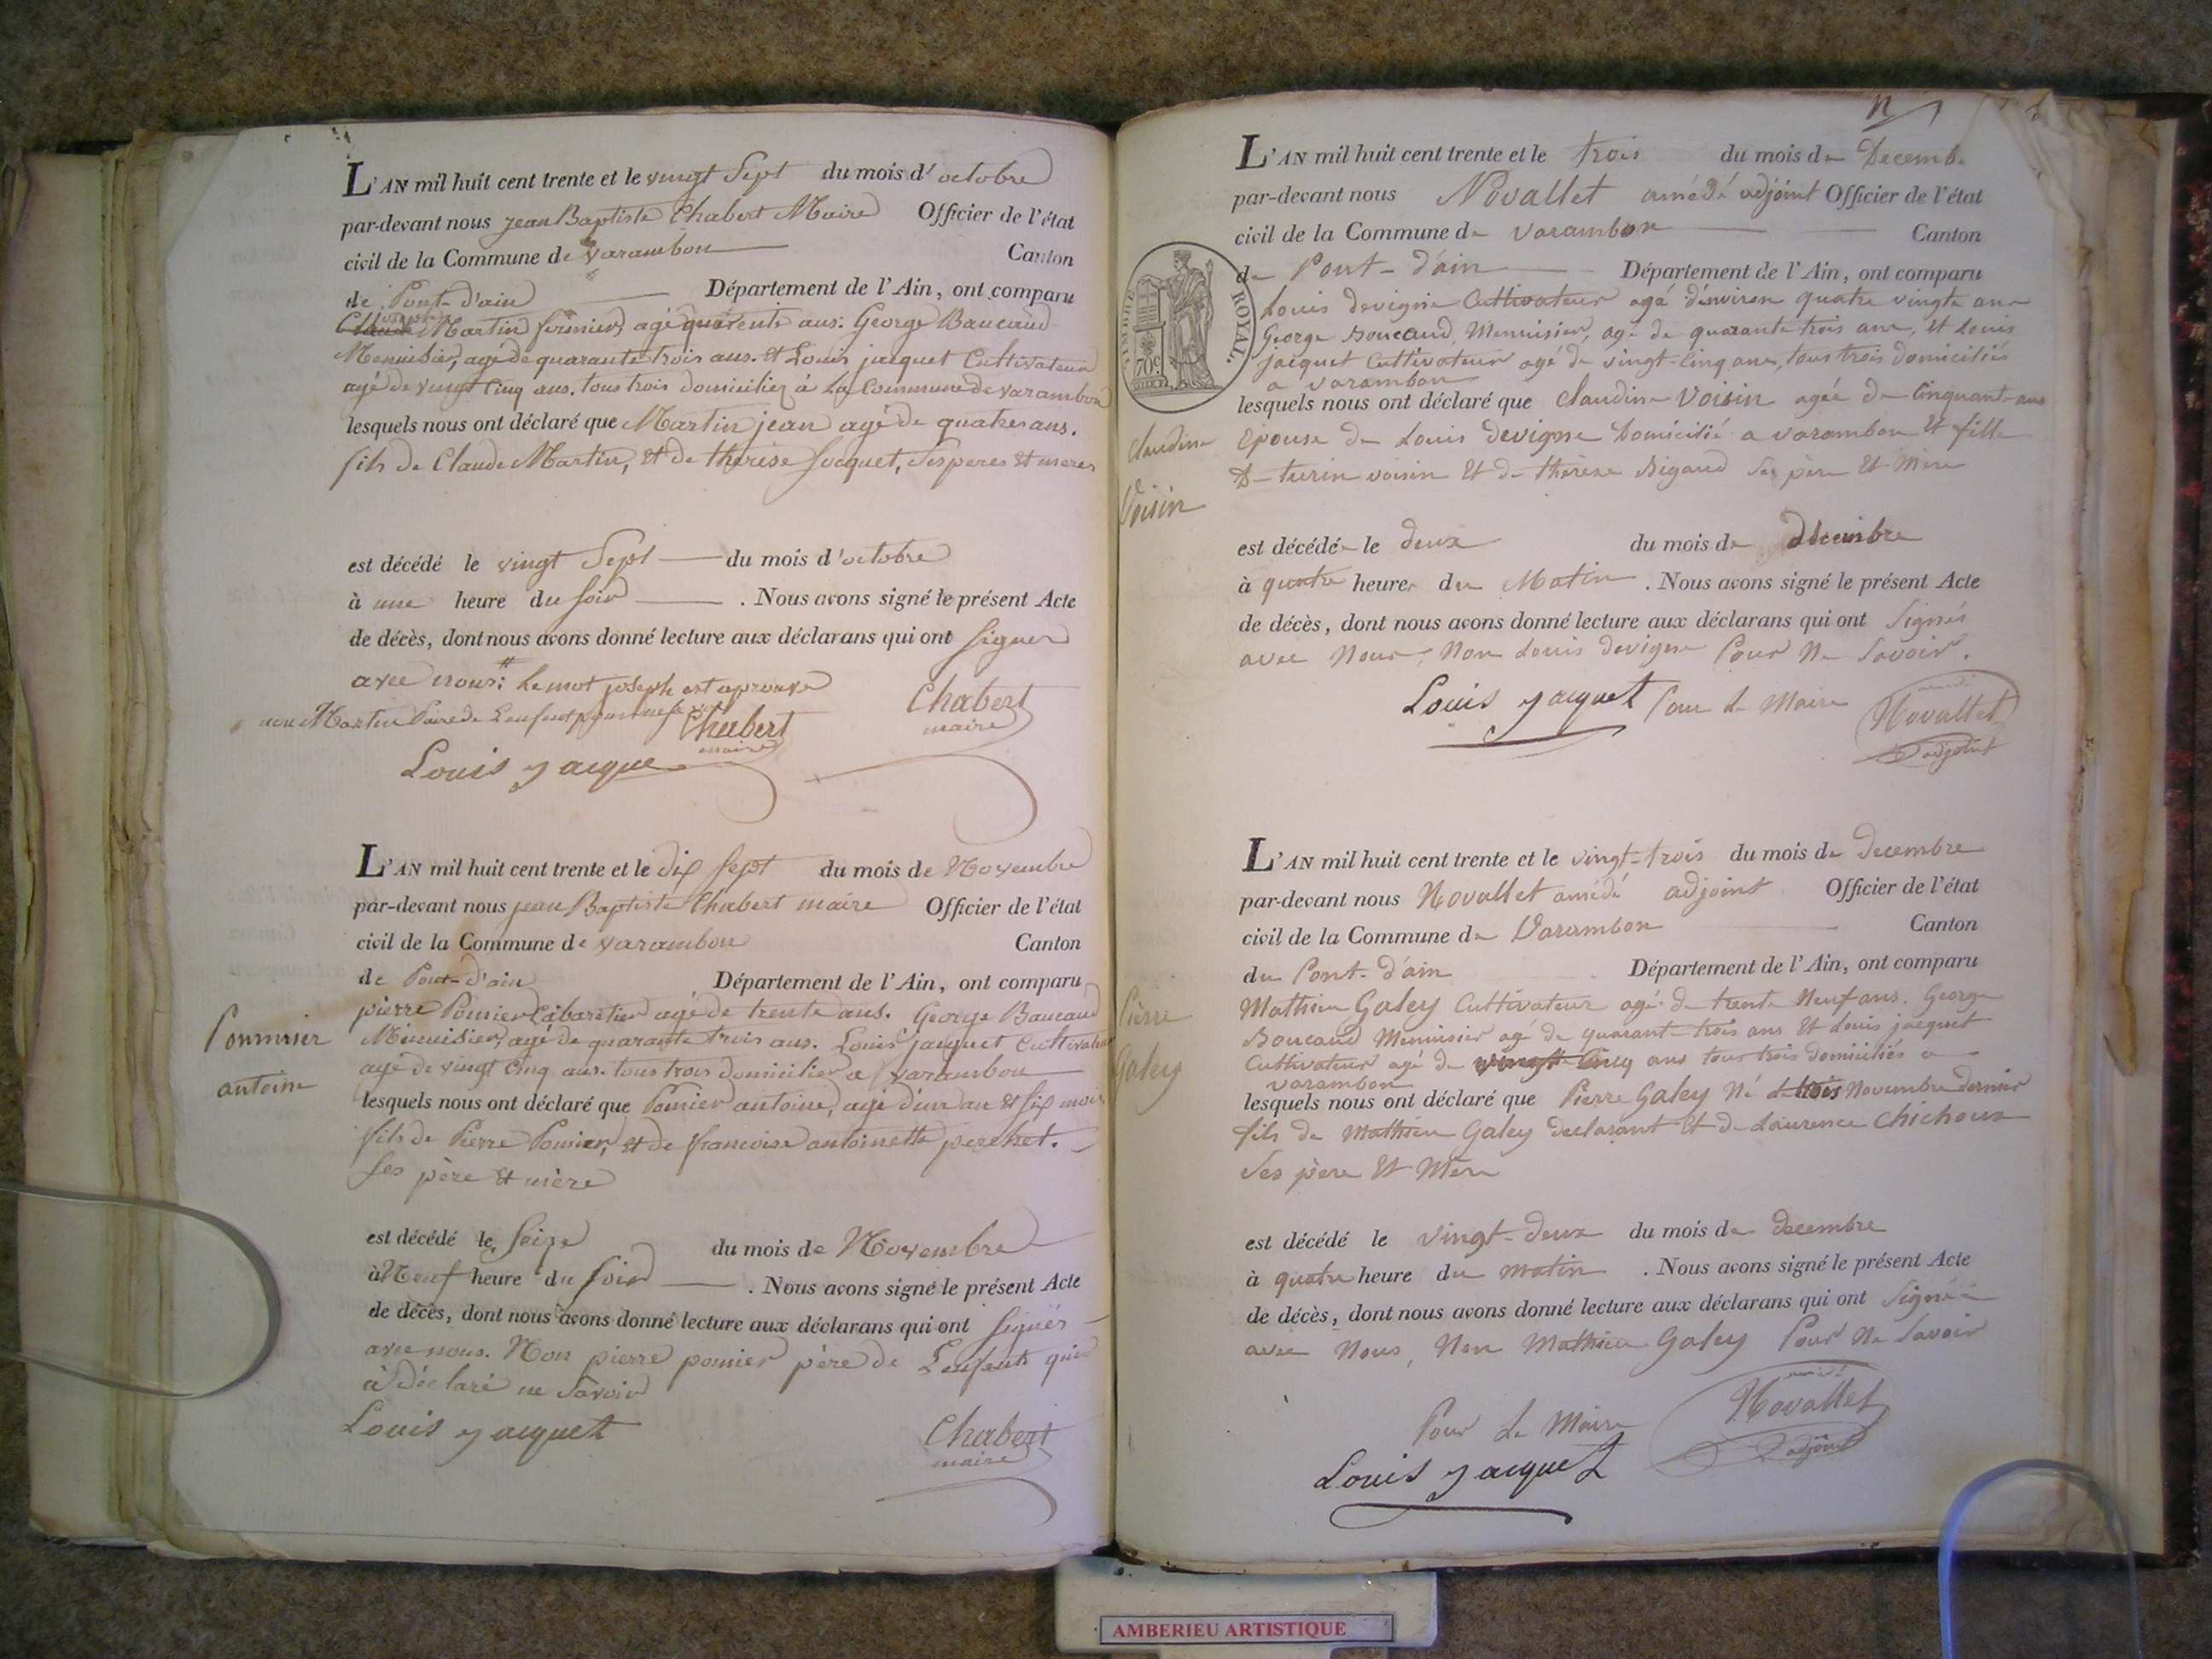 L'AN mil huit cent trente et le vingt Sept du mois d'octobre
par-devant nous jean Baptiste Chabert Maire Officier de l'état
civil de la Commune de varambon Canton
de Pont-d'ain Département de l'Ain, ont comparu
joseph
Claude Martin fermier, agé quarente ans. George Baucaud
Menuisier, agé de quarante trois ans. et Louis jacquet Cultivateur
agé de vingt Cinq ans. tous trois domiciliez à la Commune de varambon
lesquels nous ont déclaré que Martin jean agé de quatre ans.
fils de Claude Martin, et de therèse Jocquet, Ses peres et meres
est décédé le vingt Sept du mois d'octobre
à une heure du Soir . Nous avons signé le présent Acte
de décès, dont nous avons donné lecture aux déclarans qui ont Signer
avec nous: Le mot joseph est aprouvé
non Martin Pere de Lenfent pour ne
Chabert
maire
Chabert
maire
Louis jacque
L'AN mil huit cent trente et le dix Sept du mois de Novembre
par-devant nous jean Baptiste Chabert maire Officier de l'état
civil de la Commune de varambon Canton
de Pont-d'ain Département de l'Ain, ont comparu
pierre Pomier Cabaretier agé de trente ans. George Baucaud
Menuisier, agé de quarante trois ans. Louis jacquet Cultivateur
agé de vingt Cinq ans. tous trois domicilier a varambon
Pommier
antoine
lesquels nous ont déclaré que Pomier antoine, agé d'un an et six mois
fils de Pierre Pomier, et de francoise antoinette perchet.
Ses père et mère
est décédé le Seize du mois de Novembre
à Neuf heure du Soir . Nous avons signé le présent Acte
de décès, dont nous avons donné lecture aux déclarans qui ont Signés
avec nous. Non pierre pomier père de Lenfent qui
à déclaré ne Savoir
Louis jacquet
Chabert
maire
L'AN mil huit cent trente et le trois du mois de Decemb.
par-devant nous Novallet amédé adjoint Officier de l'état
civil de la Commune de varambon Canton
de Pont-d'ain Département de l'Ain, ont comparu
TIMBRE ROYAL.
70c
Louis devigne Cultivateur agé d'environ quatre vingts ans
George Boucaud, Menuisier, agé de quarante trois ans, et Louis
Jacquet Cultivateur agé de vingt-Cinq ans, tous trois domiciliés
a varambon
lesquels nous ont déclaré que Claudine Voisin agée de Cinquante ans
Claudine
Voisin
Epouse de Louis devigne Domicilié a varambon Et fille
De turin voisin Et de thérèse Rigaud Ses père Et Mère
est décédée le deux du mois de décembre
à quatre heures du Matin . Nous avons signé le présent Acte
de décès, dont nous avons donné lecture aux déclarans qui ont Signés
avec Nous, Non Louis devigne Pour Ne Savoir.
Louis jacquet Pour Le Maire
amédé
Novallet
adjoint
L'AN mil huit cent trente et le vingt-trois du mois de decembre
par-devant nous Novallet amédé adjoint Officier de l'état
civil de la Commune de Varambon Canton
du Pont-d'ain Département de l'Ain, ont comparu
Mathieu Galey Cultivateur agé de trente Neuf ans. George
Boucaud Menuisier agé de quarante-trois ans Et Louis jacquet
Cultivateur agé de vingt Cinq ans tous trois domiciliés a
varambon
Pierre
Galey
lesquels nous ont déclaré que Pierre Galey Né le trois Novembre dernier
fils de Mathieu Galey declarant Et de Laurence Chichoux
Ses père Et Mère
est décédé le vingt-deux du mois de decembre
à quatre heure du matin . Nous avons signé le présent Acte
de décès, dont nous avons donné lecture aux déclarans qui ont Signés
avec Nous, Non Mathieu Galey Pour Ne Savoir
Pour Le Maire
amédé
Novallet
adjoint
Louis jacquet
AMBERIEU ARTISTIQUE